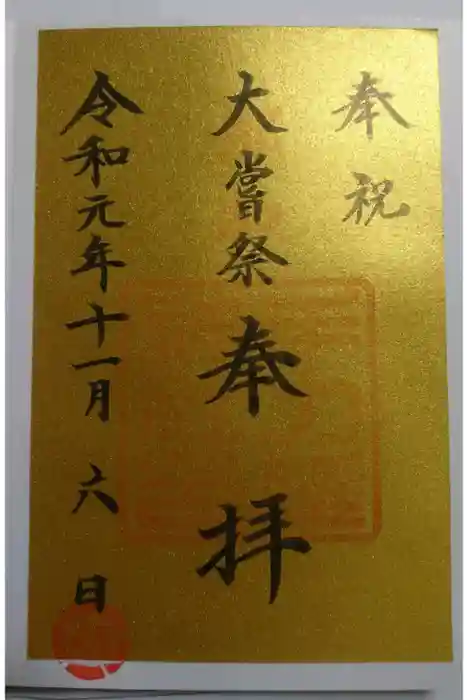 奉祝
大嘗祭奉拝
令和元年十一月六日